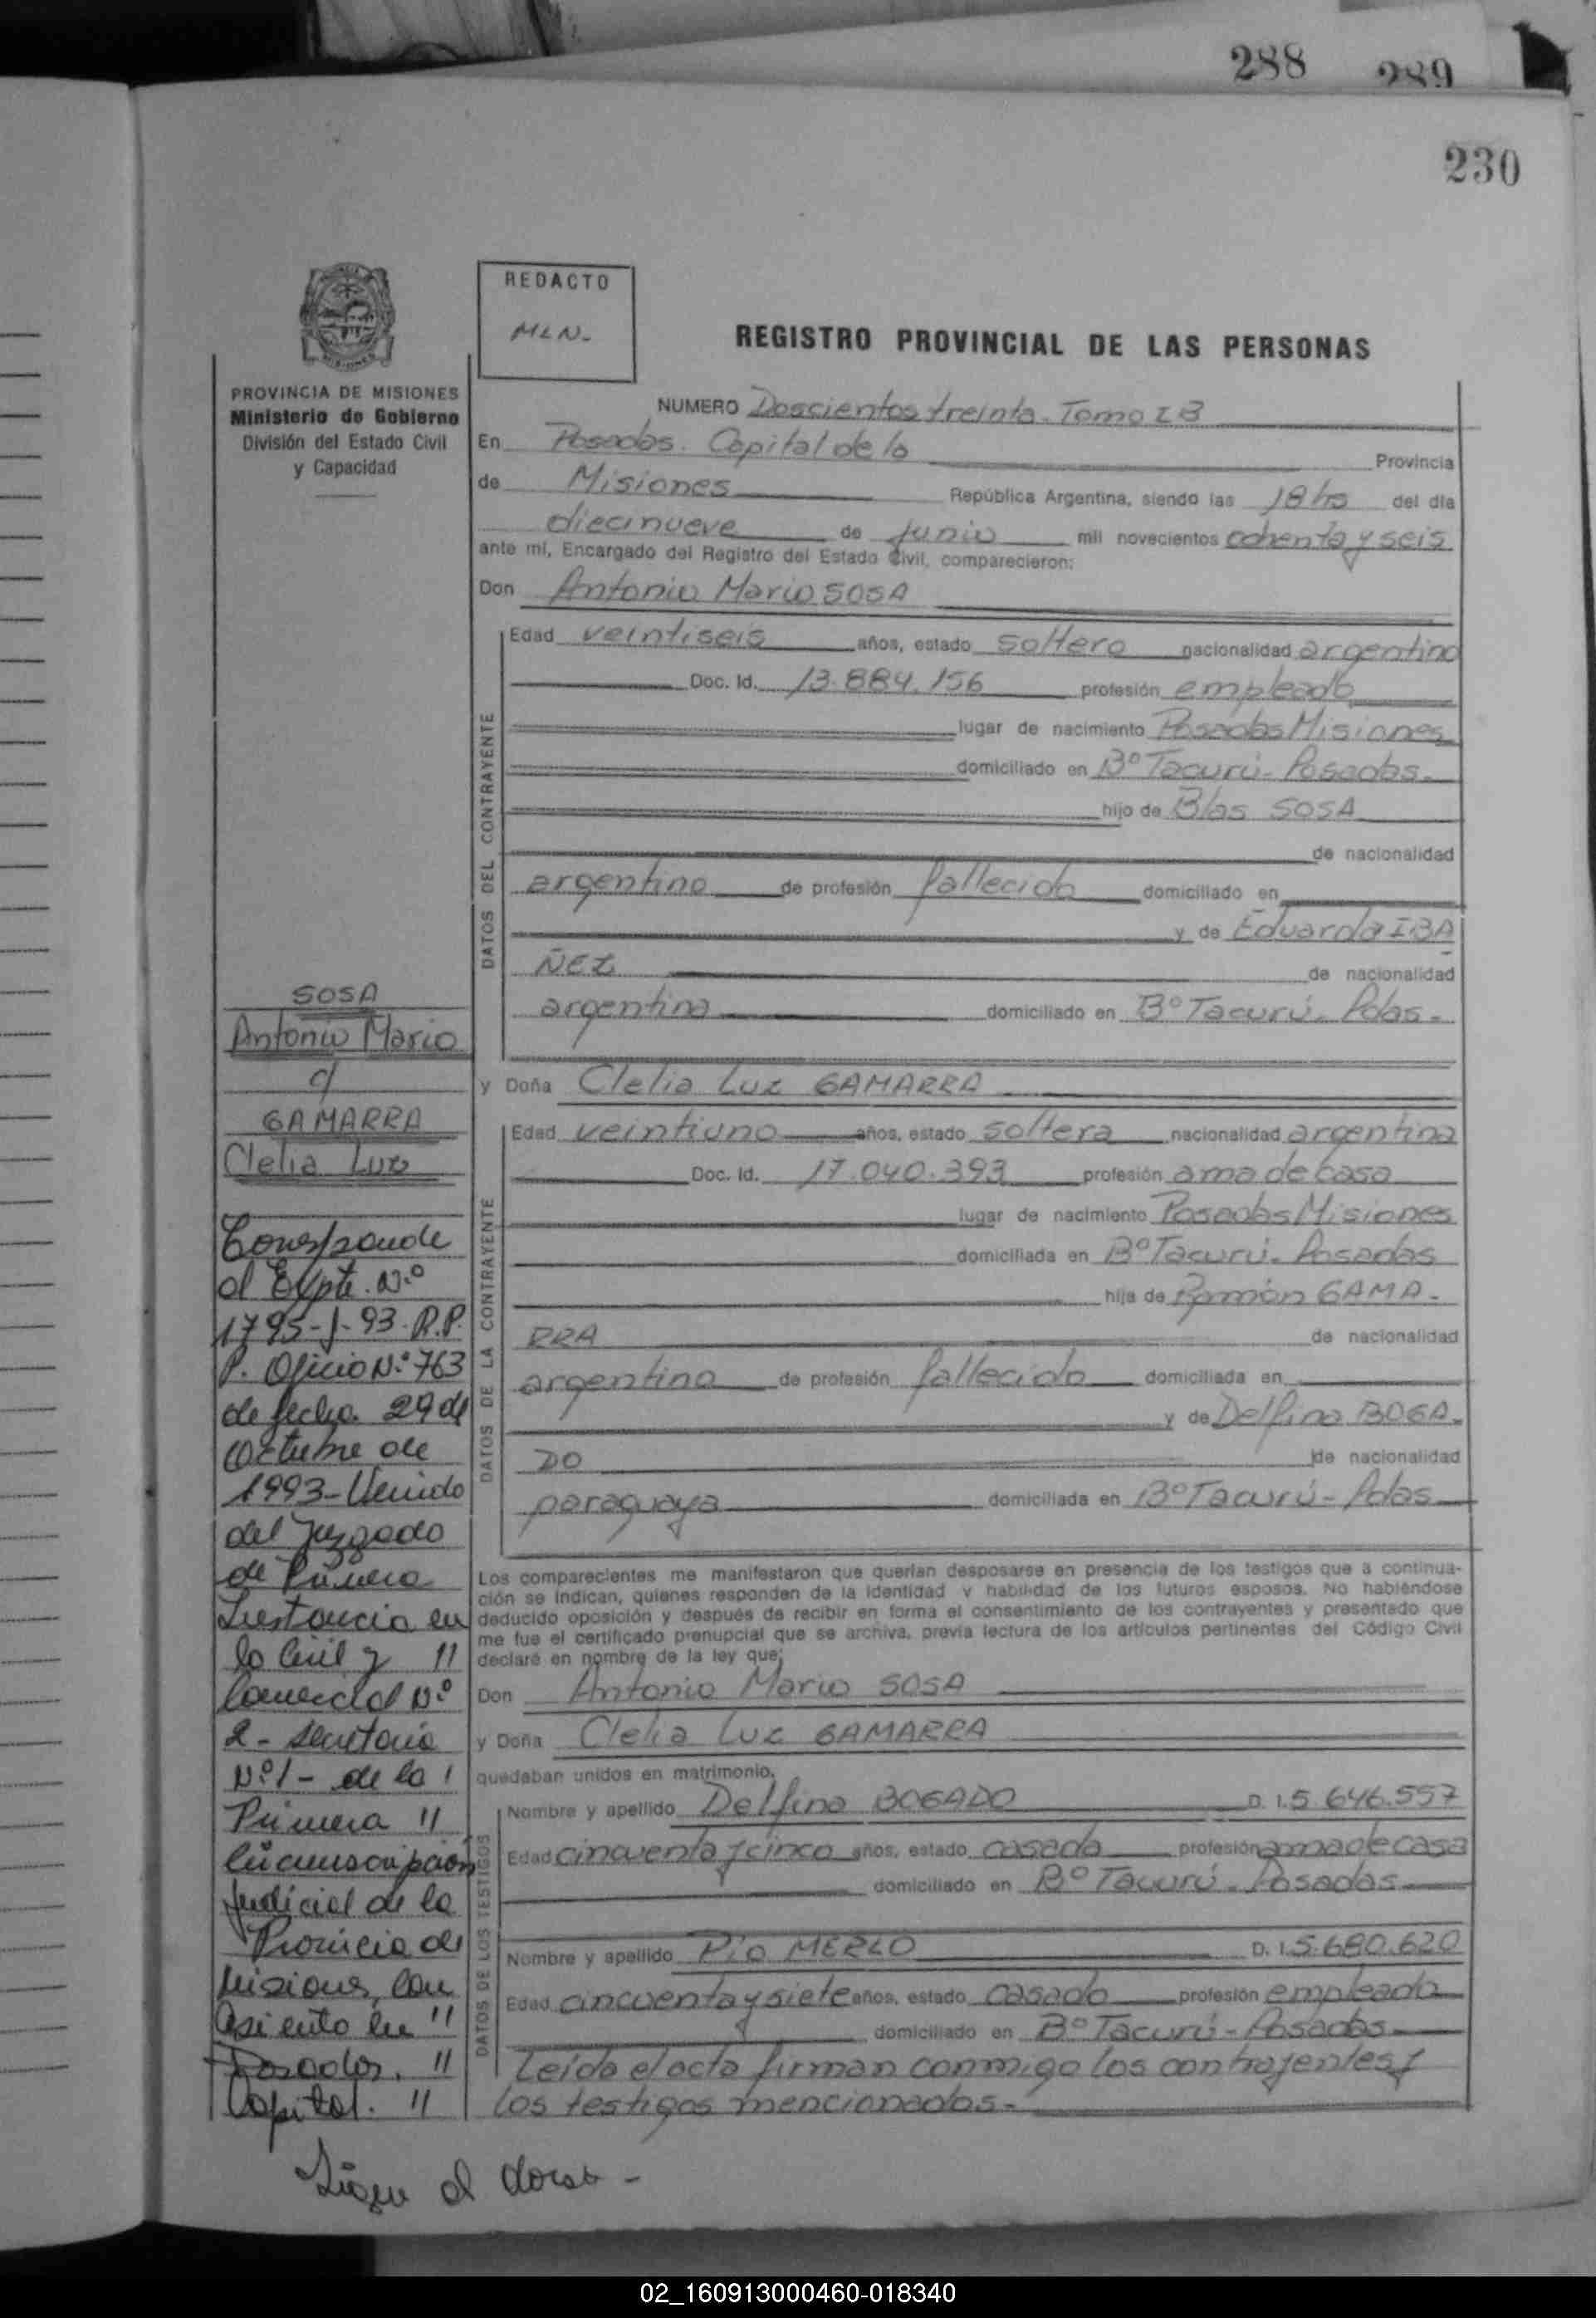 288 289
230
REDACTO
MLN.
PROVINCIA DE MISIONES
Ministerio de Gobierno
División del Estado Civil
y Capacidad
REGISTRO PROVINCIAL DE LAS PERSONAS
NUMERO Doscientos treinta. Tomo I B
En Posadas. Capital de la Provincia
de Misiones República Argentina, siendo las 18 hs del día
diecinueve de junio mil novecientos ochenta y seis
ante mí, Encargado del Registro del Estado Civil, comparecieron:
Don Antonio Mario SOSA
DATOS DEL CONTRAYENTE
Edad veintiseis años, estado soltero nacionalidad argentino
Doc. Id. 13.884.156 profesión empleado
lugar de nacimiento Posadas Misiones
domiciliado en Bº Tacurú - Posadas.
hijo de Blas SOSA
de nacionalidad
argentino de profesión fallecido domiciliado en
y de Eduarda IBA
ÑEZ de nacionalidad
argentina domiciliado en Bº Tacurú. Pdas.
y Doña Clelia Luz GAMARRA
DATOS DE LA CONTRAYENTE
Edad veintiuno años, estado soltera nacionalidad argentina
Doc. Id. 17.040.393 profesión ama de casa
lugar de nacimiento Posadas Misiones
domiciliada en Bº Tacurú. Posadas
hija de Ramón GAMA-
RRA de nacionalidad
argentino de profesión fallecido domiciliada en
y de Delfina BOGA-
DO de nacionalidad
paraguaya domiciliada en Bº Tacurú - Pdas
Los comparecientes me manifestaron que querían desposarse en presencia de los testigos que a continua-
ción se indican, quienes responden de la identidad y habilidad de los futuros esposos. No habiéndose
deducido oposición y después de recibir en forma el consentimiento de los contrayentes y presentado que
me fue el certificado prenupcial que se archiva, previa lectura de los artículos pertinentes del Código Civil
declaré en nombre de la ley que;
Don Antonio Mario SOSA
y Doña Clelia Luz GAMARRA
quedaban unidos en matrimonio.
DATOS DE LOS TESTIGOS
Nombre y apellido Delfina BOGADO D. I. 5.646.557
Edad cincuenta y cinco años, estado casada profesión ama de casa
domiciliado en Bº Tacurú - Posadas
Nombre y apellido Pío MERLO D. I. 5.680.620
Edad cincuenta y siete años, estado casado profesión empleado
domiciliado en Bº Tacurú - Posadas
Leída el acta firman conmigo los contrayentes y
los testigos mencionados.-
SOSA
Antonio Mario
c/
GAMARRA
Clelia Luz
Corresponde
al Expte. N.º
1795-J-93-R.P.
P. Oficio N.º 763
de fecha 29 de
Octubre de
1993- Venido
del Juzgado
de Primera
Instancia en
lo Civil y //
Comercial Nº
2 - Secretaria
Nº 1 - de la /
Primera //
Circunscripción
Judicial de la
Provincia de
Misiones, con
asiento en //
Posadas. //
Capital. //
Sigue al dorso -
02_160913000460-018340